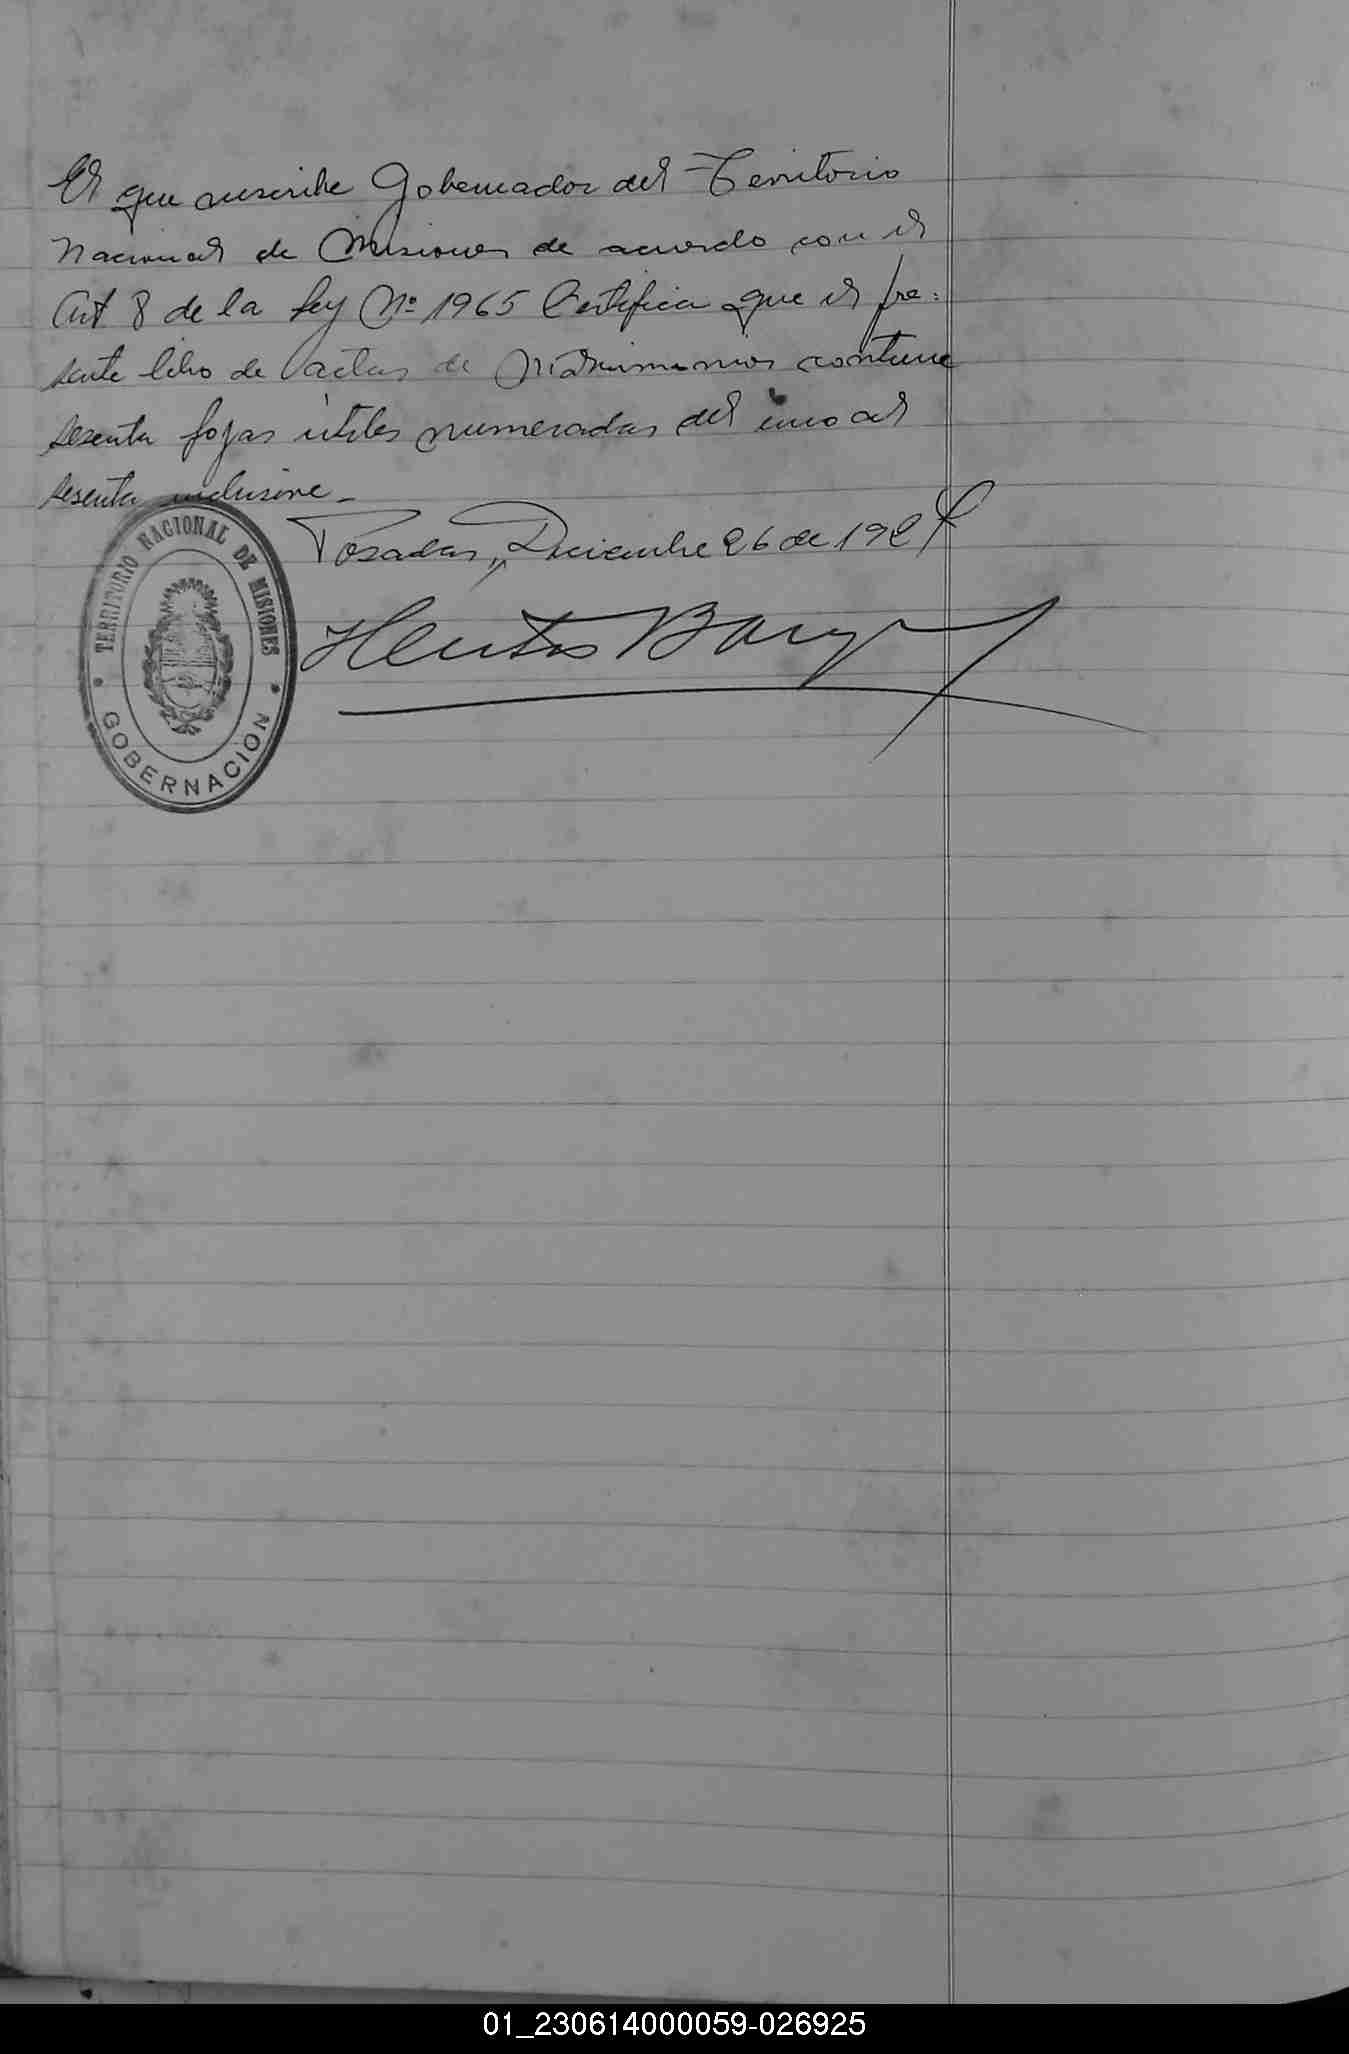 El que suscribe Gobernador del Territorio
Nacional de Misiones de acuerdo con el
Art 8 de la Ley Nº 1965 Certifica que el pre:
sente libro de actas de Matrimonios contiene
sesenta fojas utiles numeradas del uno al
sesenta inclusive_
Posadas, Diciembre 26 de 192
TERRITORIO NACIONAL DE MISIONES
GOBERNACION
01_230614000059-026925